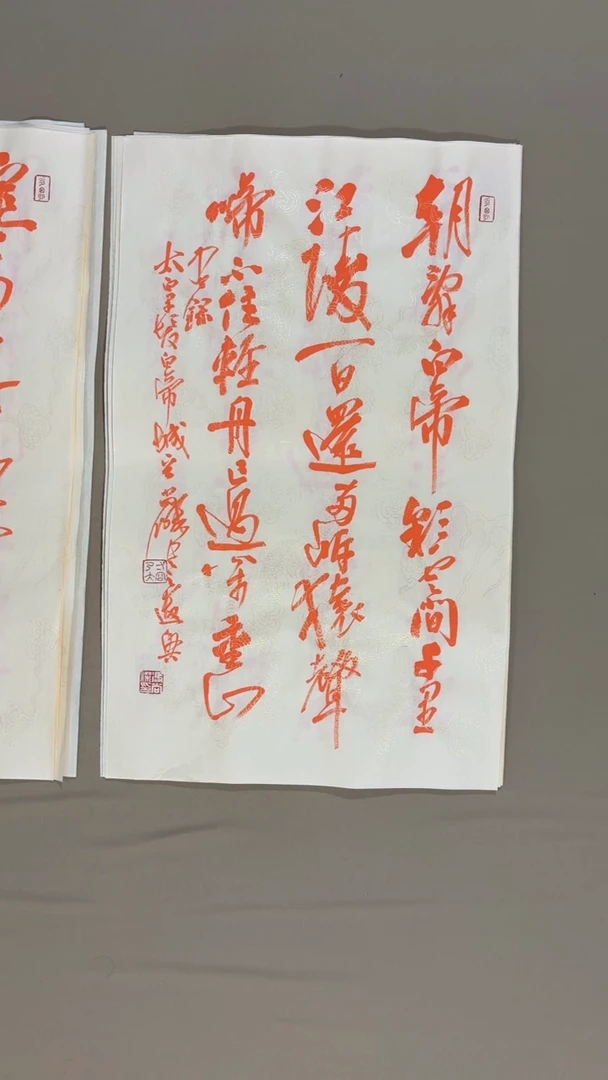 朝辭白帝彩云間千里
江陵一日還兩岸猿聲
啼不住輕舟已過萬重山
錄
太白早發白帝城之